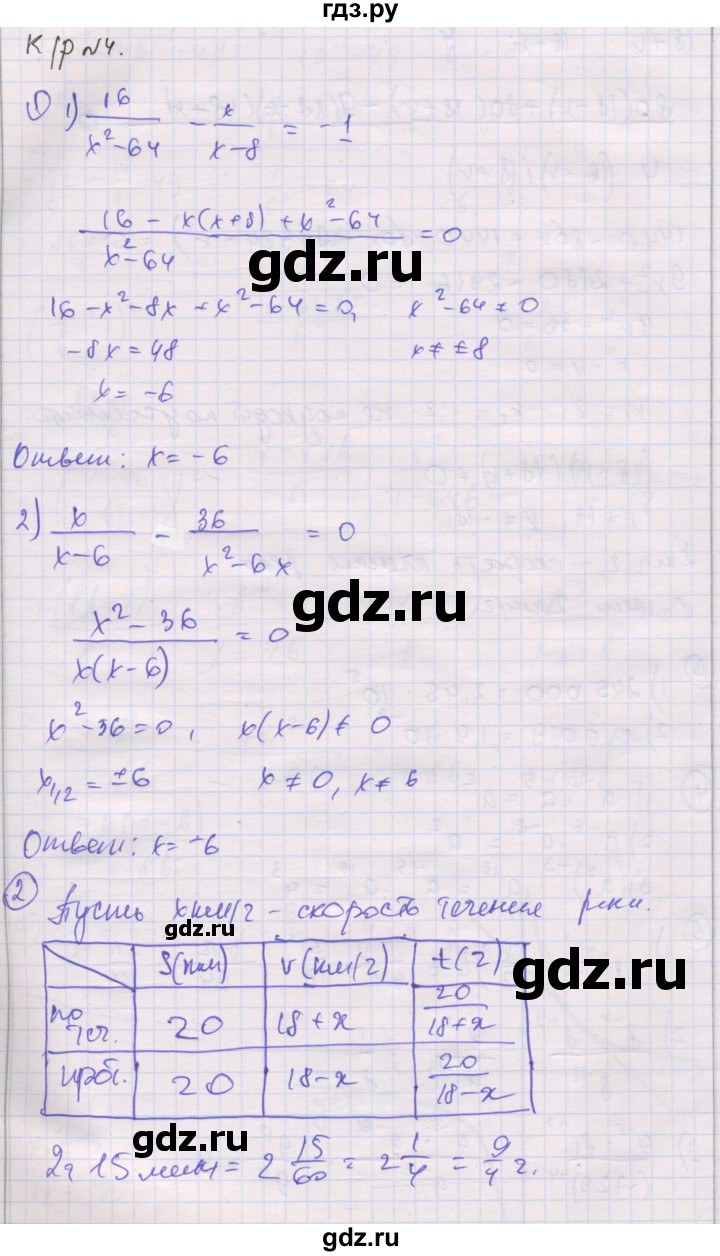 гдз.ру
К/р №4.
① 1) 16/(x²-64) - x/(x-8) = -1
(16 - x(x+8) + x²-64)/(x²-64) = 0
gdz.ru
16-x²-8x+x²-64=0, x²-64≠0
-8x=48 x≠±8
x=-6
Ответ: x=-6
gdz.ru
2) x/(x-6) - 36/(x²-6x) = 0
gdz.ru
(x²-36)/(x(x-6)) = 0
x²-36=0, x(x-6)≠0
x₁,₂=±6 x≠0, x≠6
gdz.ru
Ответ: x=-6
② Пусть x км/ч - скорость течения реки.
gdz.ru
S(км) V(км/ч) t(ч)
gdz.ru
по теч. 20 18+x 20/(18+x)
прот. 20 18-x 20/(18-x)
gdz.ru
2ч 15мин = 2 15/60 = 2 1/4 = 9/4 ч.
gdz.ru
gdz.ru